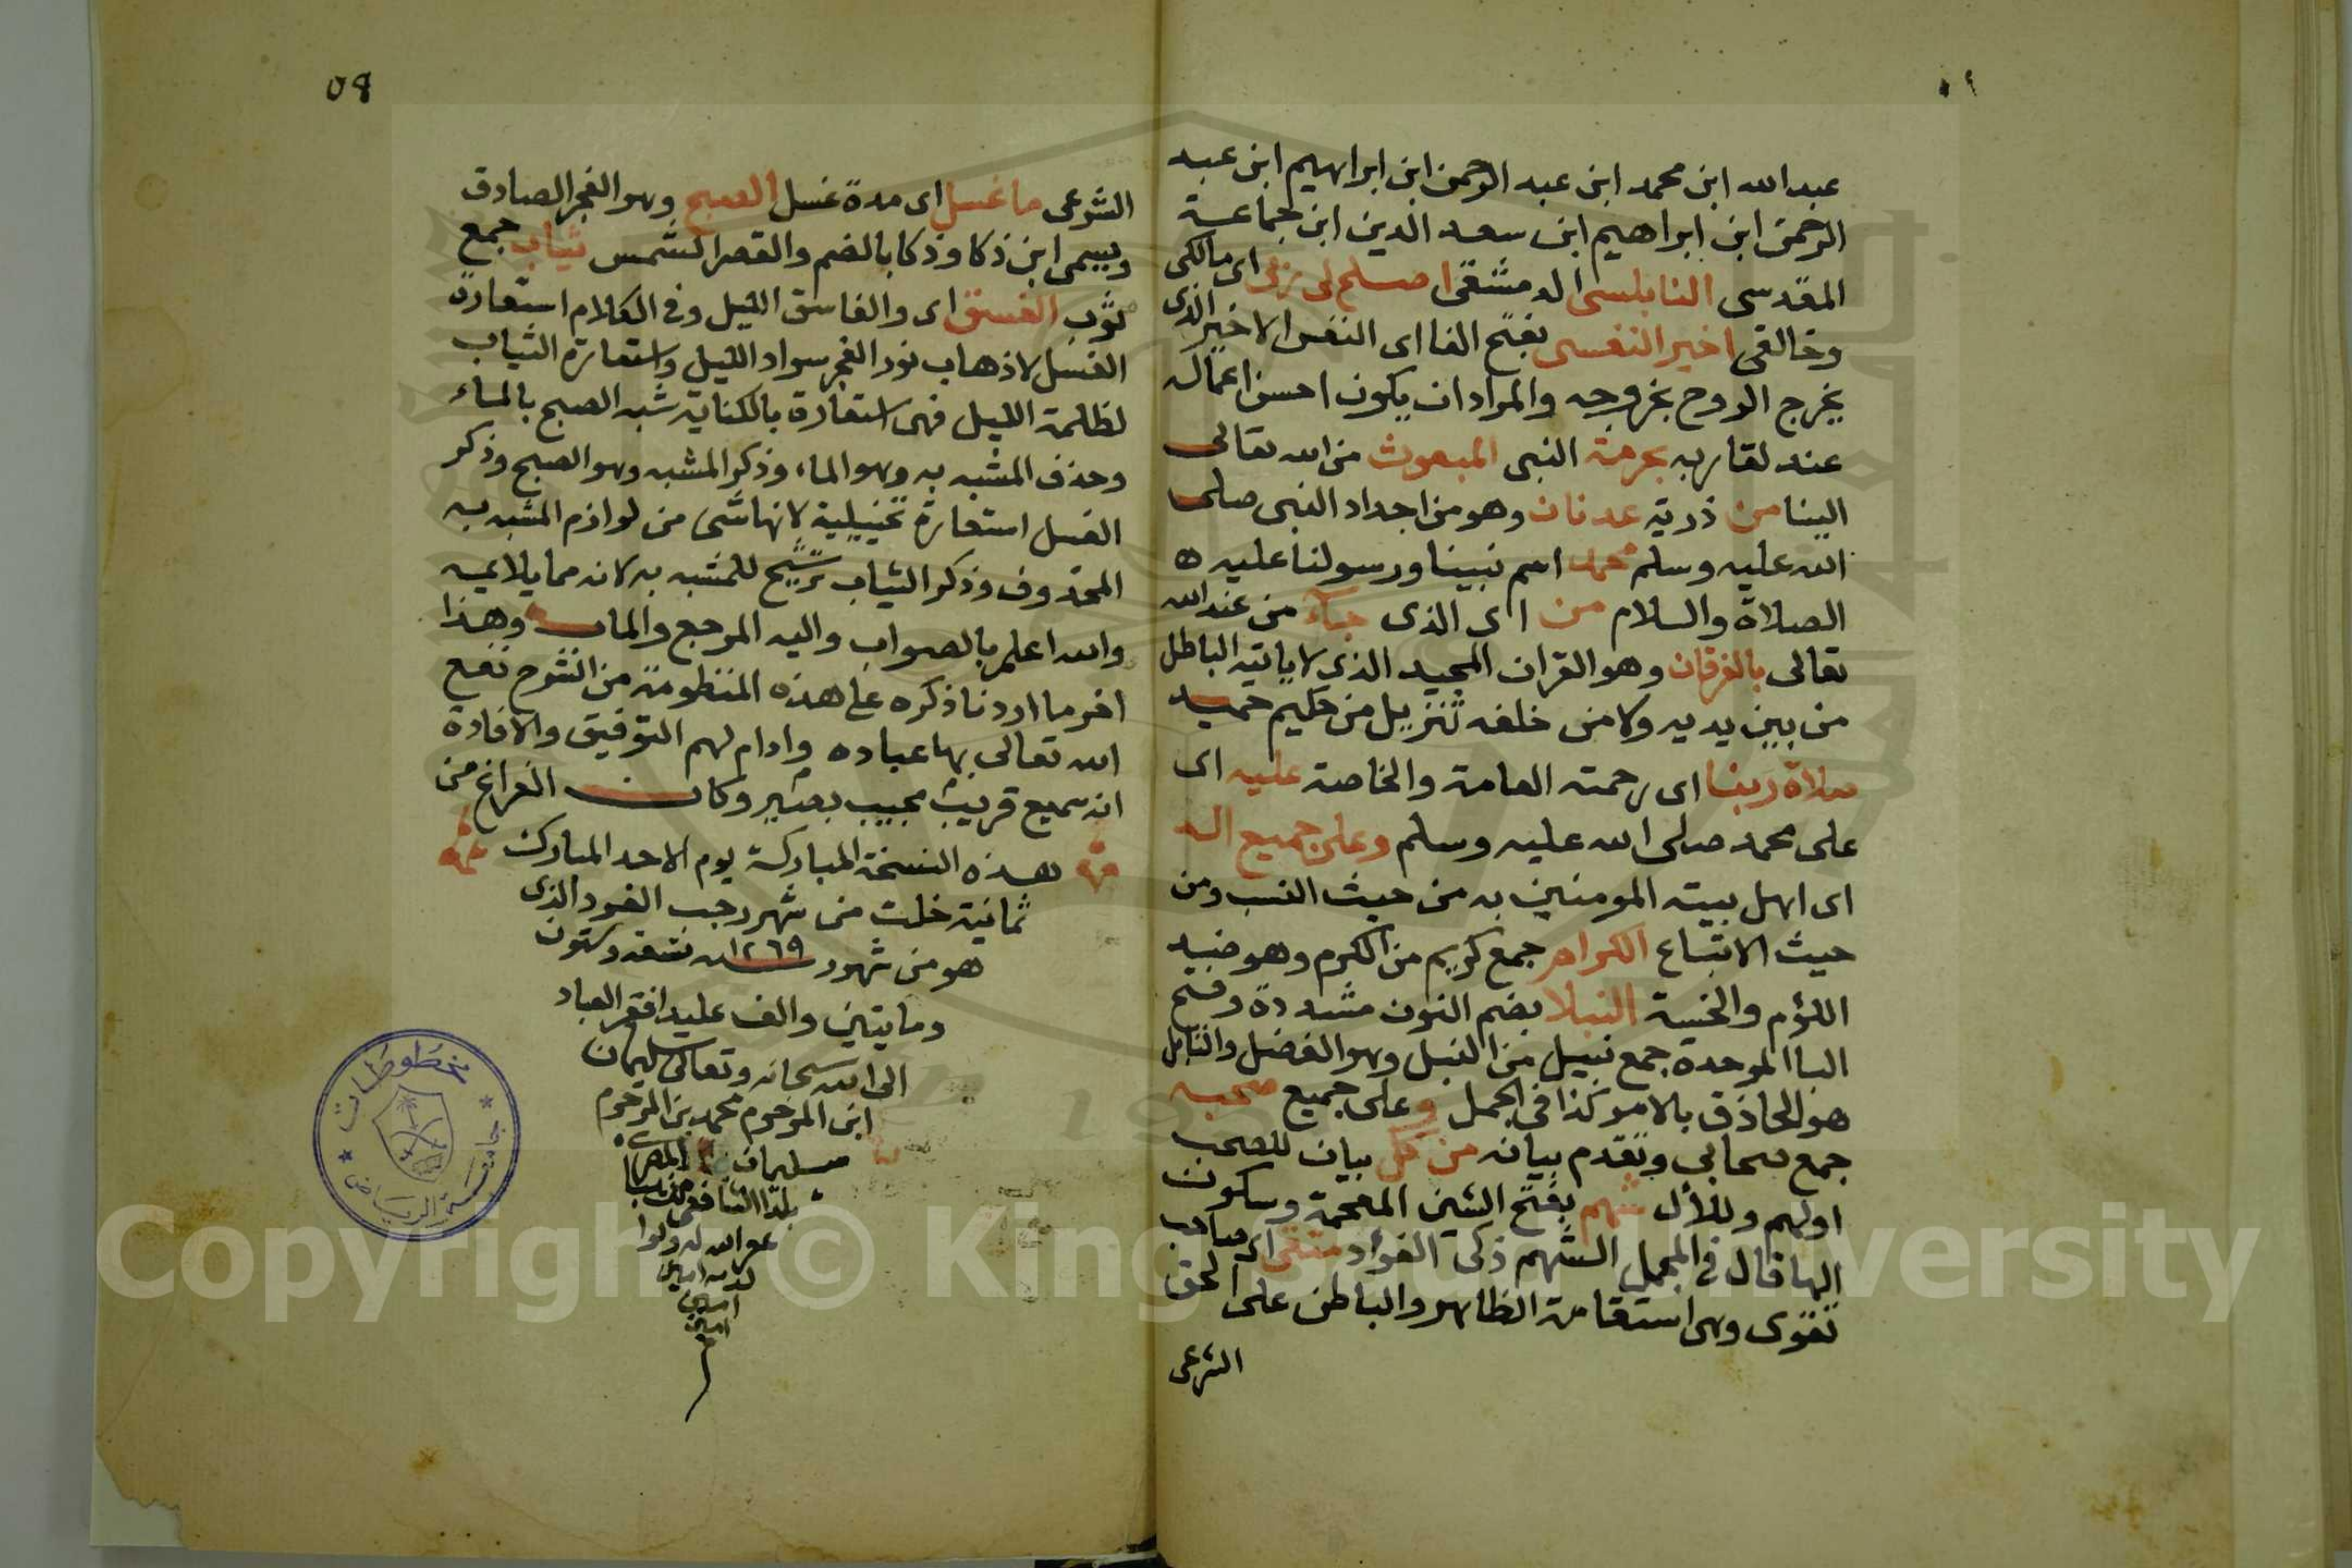 عبد الله ابن محمد ابن عبد الرحمن ابن ابراهيم ابن عبد
الرحمن ابن ابراهيم ابن سعد الدين ابن جماعة
المقدسى النابلسى الدمشقى اصلح لى ربى اى مالكى
وخالقى اخير النفسى بفتح الفا اى النفس الاخير الذى
يخرج الروح بخروجه والمراد ان يكون احسن اعماله
عند لقا ربه بحرمة النبى المبعوث من الله تعالى
الينا من ذرية عدنان وهو من اجداد النبى صلى
الله عليه وسلم محمد اسم نبينا ورسولنا عليه
الصلاة والسلام من اى الذى جآء من عند الله
تعالى بالفرقان وهو القران المجيد الذى لا ياتيه الباطل
من بين يديه ولا من خلفه تنزيل من حكيم حميد
صلاة ربنا اى رحمته العامة والخاصة عليه اى
على محمد صلى الله عليه وسلم وعلى جميع اله
اى اهل بيته المومنين به من حيث النسب ومن
حيث الاتباع الكرام جمع كريم من الكرم وهو ضد
اللؤم والخسة النبلا بضم النون مشددة وفتح
البا الموحدة جمع نبيل من النبل وهو الفضل والنابل
هو الحاذق بالامر كذا فى المجمل وعلى جميع صحبه
جمع صحابي وتقدم بيانه من كل بيان للصحب
اولهم وللأل شهم بفتح الشين المعجمة وسكون
الها قال في المجمل الشهم ذكى الفؤاد متقى اى صاحب
تقوى وهى استقامة الظاهر والباطن على الحق
الشرعى
٥٩
الشرعى ما غسل اى مدة غسل الصبح وهو الفجر الصادق
ويسمى ابن ذكا وذكا بالضم والقصر الشمس ثياب جمع
ثوب الغسق اى والغاسق الليل وفى الكلام استعارة
الغسل لاذهاب نور الفجر سواد الليل واستعارة الثياب
لظلمة الليل فهى استعارة بالكناية شبه الصبح بالماء
وحذف المشبه به وهو الماء وذكر المشبه وهو الصبح وذكر
الغسل استعارة تخييلية لانها شى من لوازم المشبه به
المحذوف وذكر الثياب ترشيح للمشبه به لانه مما يلايمه
والله اعلم بالصواب واليه المرجع والماب وهذا
اخر ما اردنا ذكره على هذه المنظومة من الشرح نفع
الله تعالى بها عباده وادام لهم التوفيق والافادة
انه سميع قريب مجيب بصير وكان الفراغ من
هذه النسخة المباركة يوم الاحد المبارك
ثمانية خلت من شهر رجب الفرد الذى
هو من شهور سنه ١٢٦٩ تسعة وستون
ومايتين والف على يد افقر العباد
الى الله سبحانه وتعالى سليمان
ابن المرحوم محمد بن المرحوم
سليمان
بلدا الشافعى مذهبا
غفر الله له
امين
امين
مخطوطات
جامعة الرياض
Copyright © King Saud University